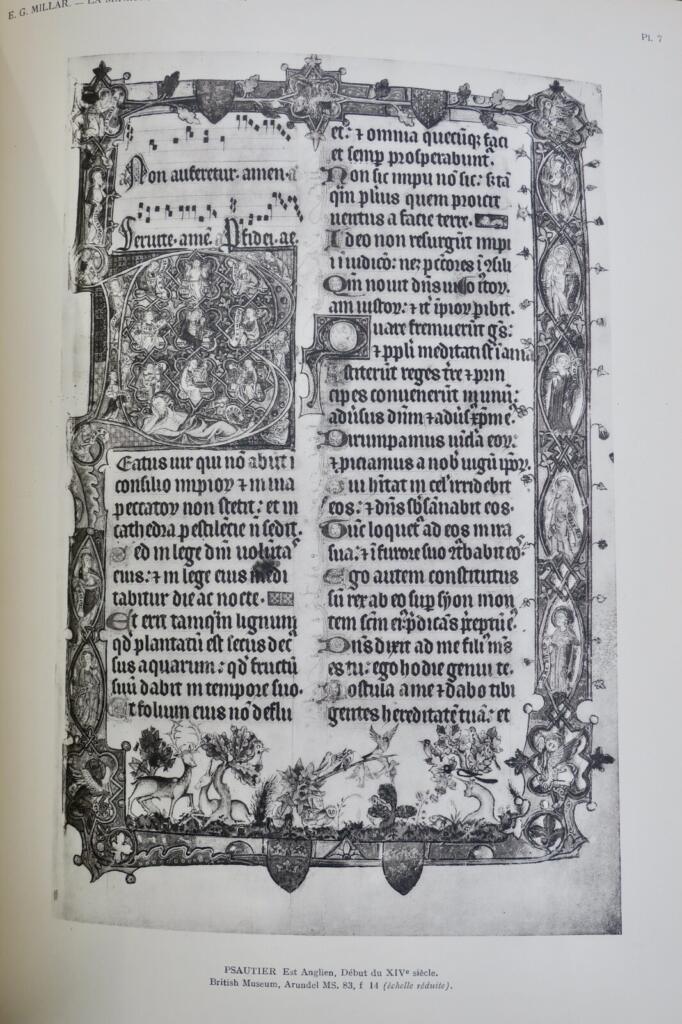 E. G. MILLAR. — LA
Pl. 7
Non auferetur. amen. a
Seruite. amē. a Pfidei. ae.
Eatus uir qui nō abiit i
consilio impioꝝ ⁊ in uia
peccatoꝝ non stetit: et in
cathedra pestilēcie n̄ sedit.
Sed in lege dn̄i uolūta
eius: ⁊ in lege eius medi
tabitur die ac nocte.
Et erit tamq̄m lignum
qd̄ plantatū est secus dec
sus aquarum: qd̄ fructū
suū dabit in tempore suo.
Et folium eius nō deflu
et: ⁊ omnia quecūq; faci
et semꝑ prosperabunt᷑.
Non sic impii nō sic: s; tā
q̄m pluis quem proicit
uentus a facie terre.
Ideo non resurgūt impi
i i iudico: neq; pctōres i ꝯsili
Qm̄ nouit dn̄s
am iustoꝝ: ⁊ it̄ ipioꝝ pibit.
Quare fremuerūt gēs:
⁊ ppl̄i meditati sūt inania
Astiterūt reges tr̄e ⁊ prin
cipes conuenerūt in unū:
adūsus dn̄m ⁊ adūsꝰ xp̄m eꝰ.
Dirumpamus uīcla eoꝝ:
⁊ ꝓiciamus a nob̄ iugū ip̄oꝝ.
Qui hītat in cel̄ irridebit
eos: ⁊ dn̄s sb̄sānabit eos.
Tunc loquet᷑ ad eos in ira
sua: ⁊ ī furore suo ꝯt̄babit eoˢ
Ego autem constitutus
sū rex ab eo suꝑ syon mon
tem scm̄ eiꝰ: p̄dicās p̄ceptū eꝰ.
Dn̄s dixit ad me filiꝰ mꝰs
es tu: ego hodie genui te.
Postula a me ⁊ dabo tibi
gentes hereditatē tuā: et
PSAUTIER Est Anglien, Début du XIVᵉ siècle.
British Museum, Arundel MS. 83, f 14 (échelle réduite).